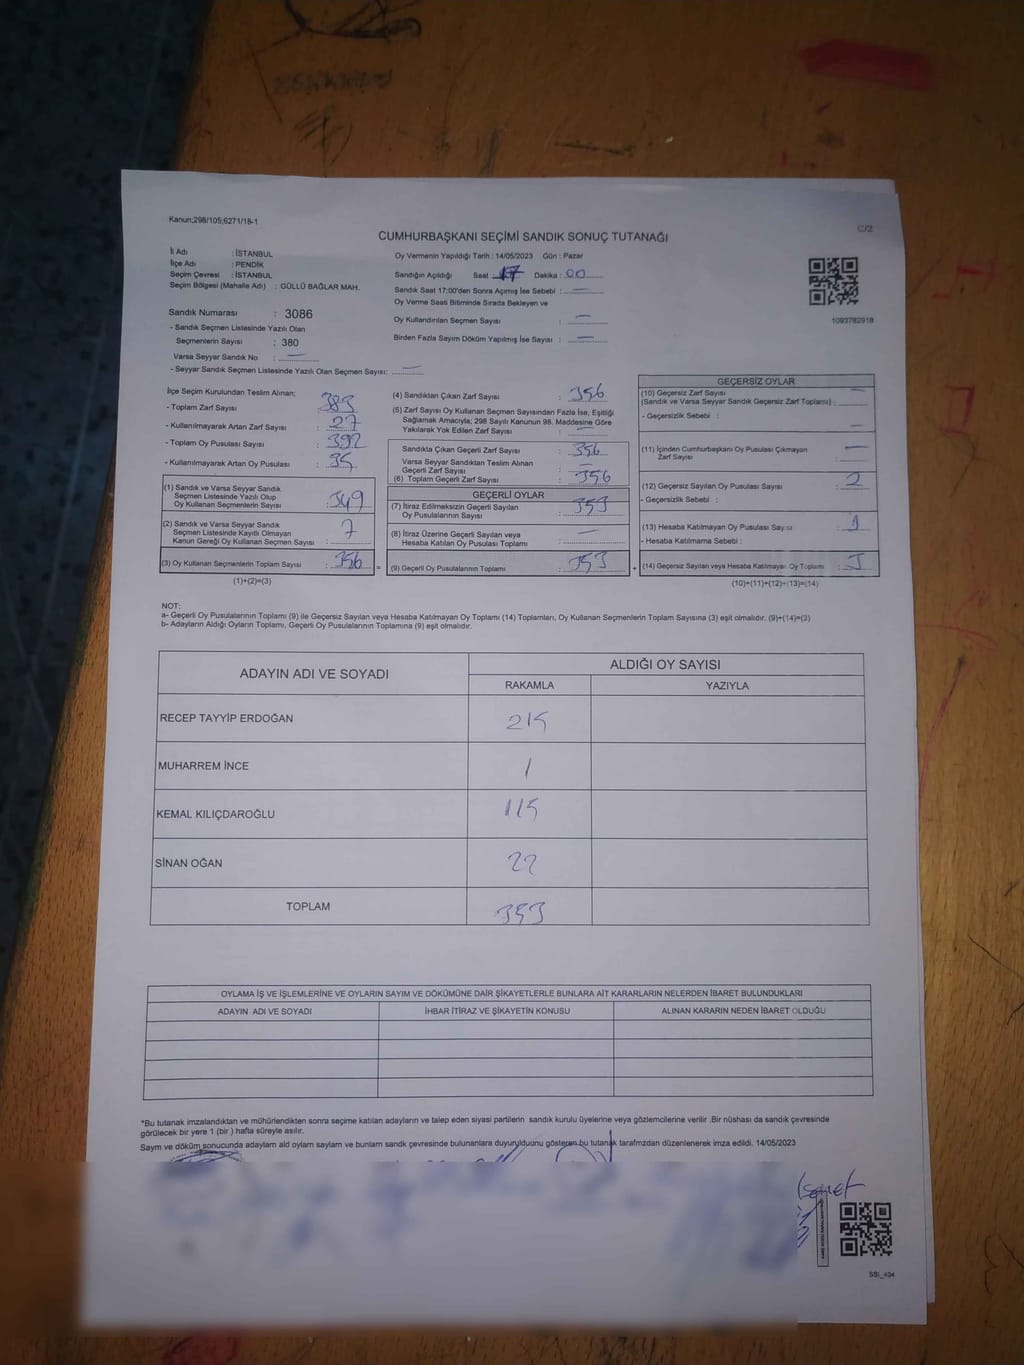 Kanun;298/105;6271/18-1
C/2
CUMHURBAŞKANI SEÇİMİ SANDIK SONUÇ TUTANAĞI
İl Adı : İSTANBUL
İlçe Adı : PENDİK
Seçim Çevresi : İSTANBUL
Seçim Bölgesi (Mahalle Adı) : GÜLLÜ BAĞLAR MAH.
Sandık Numarası : 3086
- Sandık Seçmen Listesinde Yazılı Olan
Seçmenlerin Sayısı : 380
Varsa Seyyar Sandık No : —
- Seyyar Sandık Seçmen Listesinde Yazılı Olan Seçmen Sayısı: —
Oy Vermenin Yapıldığı Tarih : 14/05/2023 Gün : Pazar
Sandığın Açıldığı Saat : 17 Dakika : 00
Sandık Saat 17:00'den Sonra Açımış İse Sebebi : —
Oy Verme Saati Bitiminde Sırada Bekleyen ve
Oy Kullandırılan Seçmen Sayısı : —
Birden Fazla Sayım Döküm Yapılmış İse Sayısı : —
1093782918
İlçe Seçim Kurulundan Teslim Alınan;
- Toplam Zarf Sayısı : 383
- Kullanılmayarak Artan Zarf Sayısı : 27
- Toplam Oy Pusulası Sayısı : 392
- Kullanılmayarak Artan Oy Pusulası : 35
(1) Sandık ve Varsa Seyyar Sandık
Seçmen Listesinde Yazılı Olup
Oy Kullanan Seçmenlerin Sayısı : 349
(2) Sandık ve Varsa Seyyar Sandık
Seçmen Listesinde Kayıtlı Olmayan
Kanun Gereği Oy Kullanan Seçmen Sayısı : 7
(3) Oy Kullanan Seçmenlerin Toplam Sayısı : 356
(1)+(2)=(3)
(4) Sandıktan Çıkan Zarf Sayısı : 356
(5) Zarf Sayısı Oy Kullanan Seçmen Sayısından Fazla İse, Eşitliği
Sağlamak Amacıyla; 298 Sayılı Kanunun 98. Maddesine Göre
Yakılarak Yok Edilen Zarf Sayısı : —
Sandıkta Çıkan Geçerli Zarf Sayısı : 356
Varsa Seyyar Sandıktan Teslim Alınan
Geçerli Zarf Sayısı : —
(6) Toplam Geçerli Zarf Sayısı : 356
GEÇERLİ OYLAR
(7) İtiraz Edilmeksizin Geçerli Sayılan
Oy Pusulalarının Sayısı : 353
(8) İtiraz Üzerine Geçerli Sayılan veya
Hesaba Katılan Oy Pusulası Toplamı : —
= (9) Geçerli Oy Pusulalarının Toplamı : 353
GEÇERSİZ OYLAR
(10) Geçersiz Zarf Sayısı
(Sandık ve Varsa Seyyar Sandık Geçersiz Zarf Toplamı) : —
- Geçersizlik Sebebi : —
(11) İçinden Cumhurbaşkanı Oy Pusulası Çıkmayan
Zarf Sayısı : —
(12) Geçersiz Sayılan Oy Pusulası Sayısı : 2
- Geçersizlik Sebebi :
(13) Hesaba Katılmayan Oy Pusulası Sayısı : 1
- Hesaba Katılmama Sebebi :
+ (14) Geçersiz Sayılan veya Hesaba Katılmayan Oy Toplamı : 3
(10)+(11)+(12)+(13)=(14)
NOT:
a- Geçerli Oy Pusulalarının Toplamı (9) ile Geçersiz Sayılan veya Hesaba Katılmayan Oy Toplamı (14) Toplamları, Oy Kullanan Seçmenlerin Toplam Sayısına (3) eşit olmalıdır. (9)+(14)=(3)
b- Adayların Aldığı Oyların Toplamı, Geçerli Oy Pusulalarının Toplamına (9) eşit olmalıdır.
ADAYIN ADI VE SOYADI
ALDIĞI OY SAYISI
RAKAMLA YAZIYLA
RECEP TAYYİP ERDOĞAN 215
MUHARREM İNCE 1
KEMAL KILIÇDAROĞLU 115
SİNAN OĞAN 22
TOPLAM 353
OYLAMA İŞ VE İŞLEMLERİNE VE OYLARIN SAYIM VE DÖKÜMÜNE DAİR ŞİKAYETLERLE BUNLARA AİT KARARLARIN NELERDEN İBARET BULUNDUKLARI
ADAYIN ADI VE SOYADI İHBAR İTİRAZ VE ŞİKAYETİN KONUSU ALINAN KARARIN NEDEN İBARET OLDUĞU
*Bu tutanak imzalandıktan ve mühürlendikten sonra seçime katılan adayların ve talep eden siyasi partilerin sandık kurulu üyelerine veya gözlemcilerine verilir .Bir nüshası da sandık çevresinde
görülecek bir yere 1 (bir ) hafta süreyle asılır.
Sayım ve döküm sonucunda adayların ald oyların saylam ve bunlam sandk çevresinde bulunanlara duyurulduunu gösteren bu tutanak tarafmzdan düzenlenerek imza edildi. 14/05/2023
SSİ_404